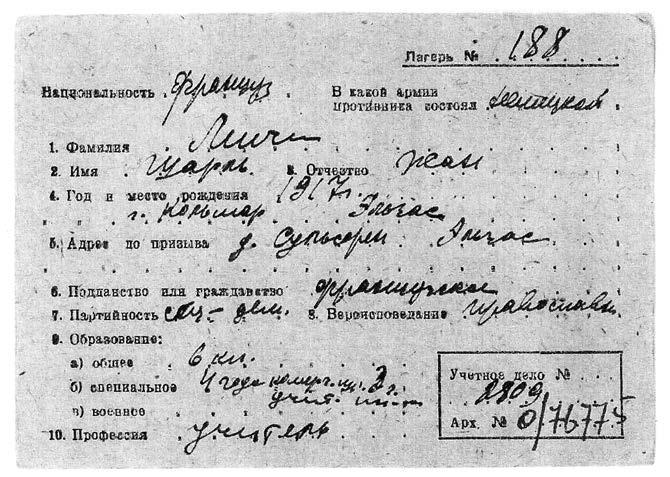 Лагерь № 188
Национальность Француз
В какой армии
противника состоял немецкой
1. Фамилия
2. Имя Шарль 3. Отчество Жан
4. Год и место рождения 1917 г.
г. Кольмар Эльзас
5. Адрес до призыва д. Эльзас
6. Подданство или гражданство французское
7. Партийность соц-дем. 8. Вероисповедание православн.
9. Образование:
а) общее 6 кл.
б) специальное 4 года
в) военное
10. Профессия учитель
Учетное дело №
2809
Арх. № 0/76775